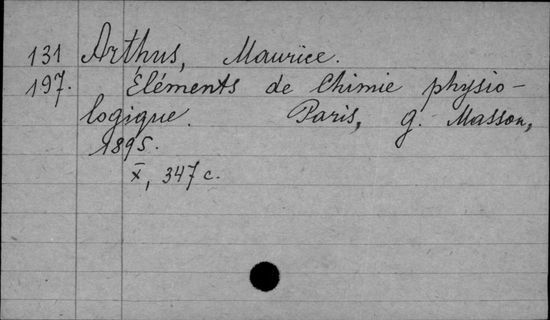 131 Arthus, Maurice.
197. Éléments de Chimie physio-
logique. Paris, g. Masson,
1895.
X, 347 c.